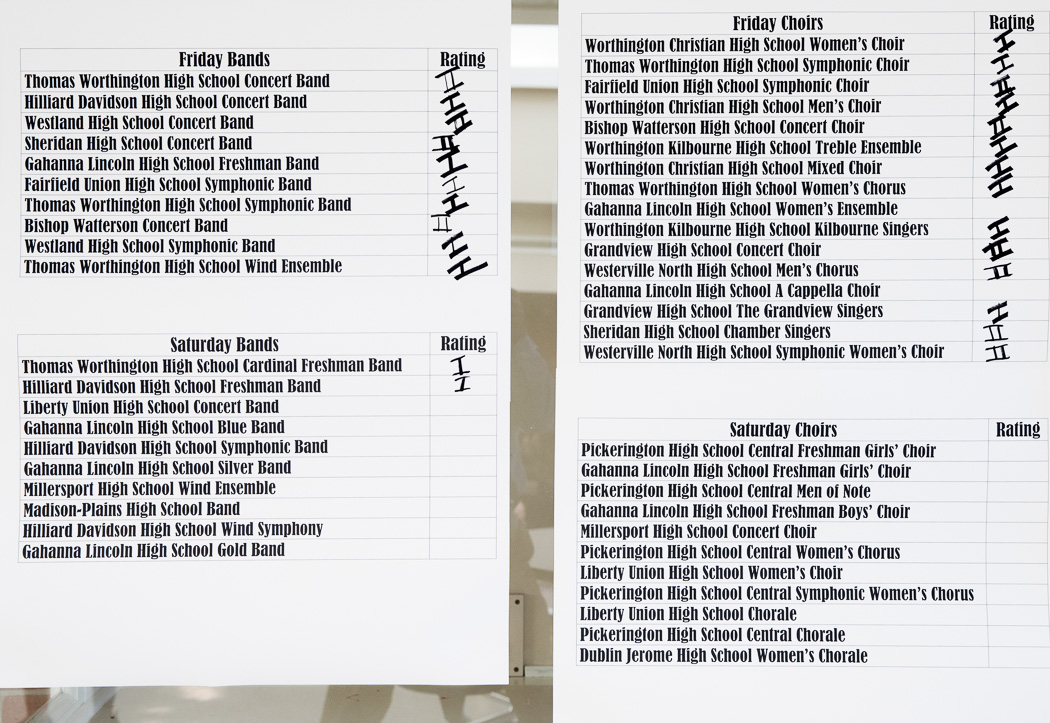 Friday Bands Rating
Thomas Worthington High School Concert Band
Hilliard Davidson High School Concert Band
Westland High School Concert Band
Sheridan High School Concert Band
Gahanna Lincoln High School Freshman Band
Fairfield Union High School Symphonic Band
Thomas Worthington High School Symphonic Band
Bishop Watterson Concert Band II
Westland High School Symphonic Band
Thomas Worthington High School Wind Ensemble
Saturday Bands Rating
Thomas Worthington High School Cardinal Freshman Band I
Hilliard Davidson High School Freshman Band I
Liberty Union High School Concert Band
Gahanna Lincoln High School Blue Band
Hilliard Davidson High School Symphonic Band
Gahanna Lincoln High School Silver Band
Millersport High School Wind Ensemble
Madison-Plains High School Band
Hilliard Davidson High School Wind Symphony
Gahanna Lincoln High School Gold Band
Friday Choirs Rating
Worthington Christian High School Women's Choir
Thomas Worthington High School Symphonic Choir
Fairfield Union High School Symphonic Choir
Worthington Christian High School Men's Choir
Bishop Watterson High School Concert Choir
Worthington Kilbourne High School Treble Ensemble
Worthington Christian High School Mixed Choir
Thomas Worthington High School Women's Chorus
Gahanna Lincoln High School Women's Ensemble
Worthington Kilbourne High School Kilbourne Singers
Grandview High School Concert Choir
Westerville North High School Men's Chorus II
Gahanna Lincoln High School A Cappella Choir
Grandview High School The Grandview Singers
Sheridan High School Chamber Singers II
Westerville North High School Symphonic Women's Choir II
Saturday Choirs Rating
Pickerington High School Central Freshman Girls' Choir
Gahanna Lincoln High School Freshman Girls' Choir
Pickerington High School Central Men of Note
Gahanna Lincoln High School Freshman Boys' Choir
Millersport High School Concert Choir
Pickerington High School Central Women's Chorus
Liberty Union High School Women's Choir
Pickerington High School Central Symphonic Women's Chorus
Liberty Union High School Chorale
Pickerington High School Central Chorale
Dublin Jerome High School Women's Chorale